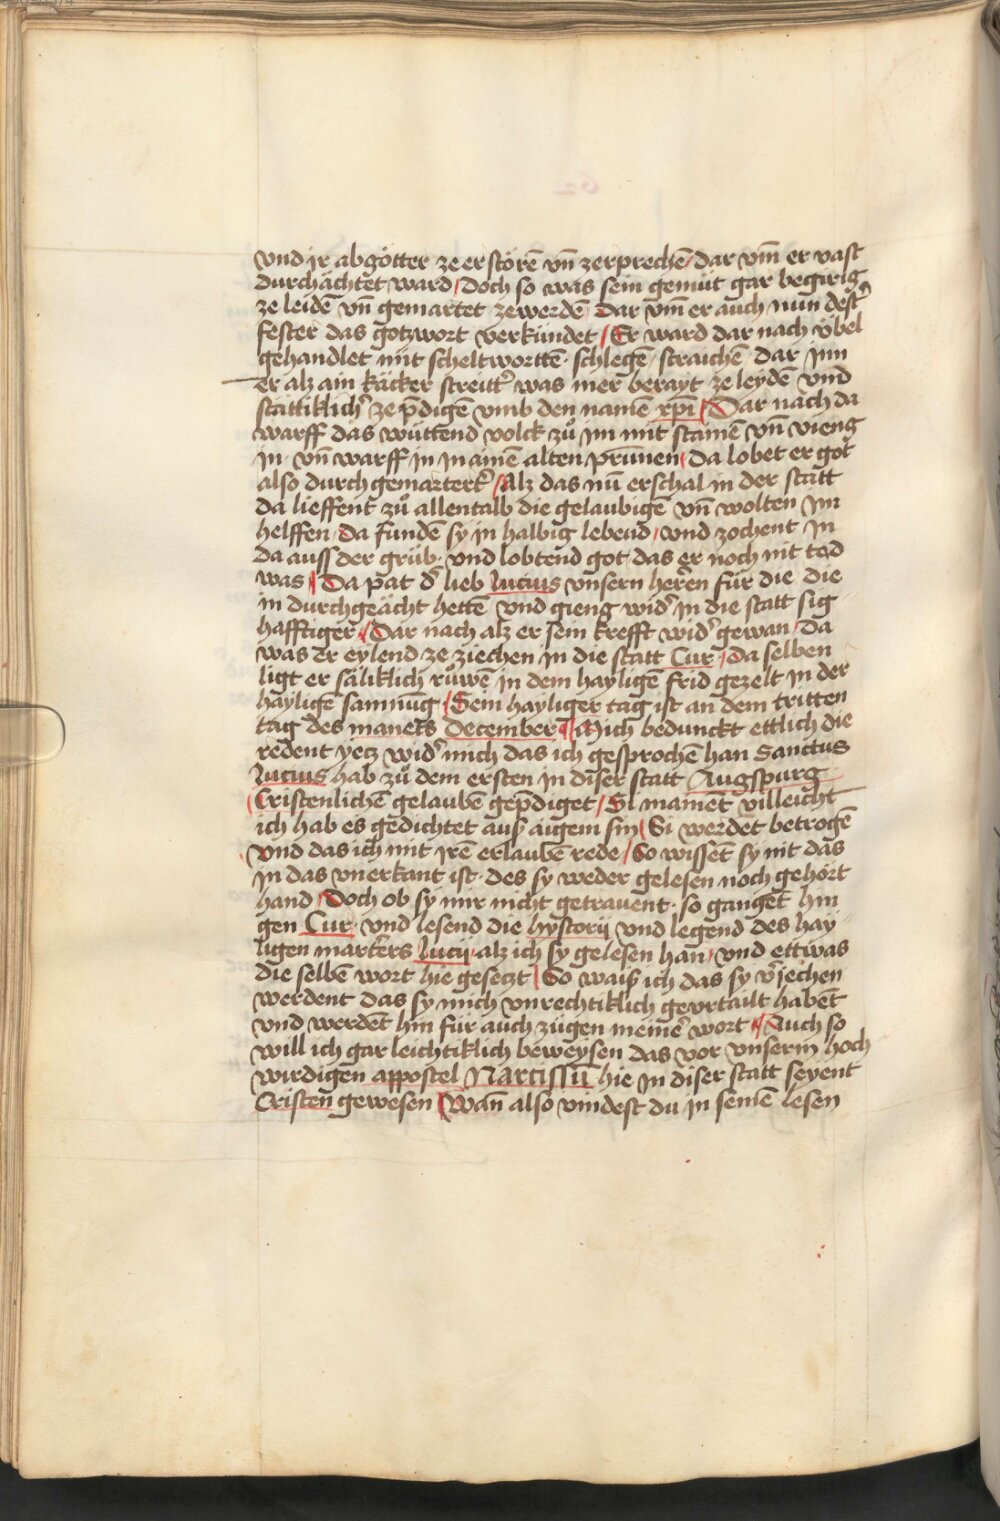 vnd jr abgötter ze erstörē vn̄ zerprechē / dar vm̄ er vast
durchächtet ward / Doch so was sein gemüt gar begirig
ze leidē vn̄ gemartet zewerdē dar vm̄ er auch nun dest
fester das gotzwort verkündet / Er ward dar nach v̈bel
gehandlet mit scheltworttē · schlegē / straichē · dar jnn
er alz ain käcker streitt͛ was mer berayt ze leydē vnd
stättiklich͛ ze p̄digē vmb den namē xp̄i / Dar nach da
warff das wüttend volck zů im mit stainē vn̄ vieng
in · vn̄ warff in in ainē alten prūnen / da lobet er got
also durchgemartert͛ / Alz das nū erschal in der statt
da lieffent zů allentalb die gelaubigē vn̄ wolten Im
helffen / da fundē sy in halbig lebend / vnd zochent in
da auss der grüb · vnd lobtend got das er noch nit tod
was / Da pat d͛ lieb lucius vnsern herēn für die die
in durchgeächt hettē vnd gieng wid͛ in die statt sig
hafftiger / Dar nach alz er sein krefft wid͛ gewan / Da
was er eylend ze ziechen in die statt Cur / Da selben
ligt er säliklich růwē in dem hayligē frid gezelt in der
hayligē samnūg / Sein hayliger tag ist an dem tritten
tag des manets December / Mich bedunckt ettlich die
redent yetz wid͛ mich das ich gesprochē han Sanctus
lucius hab zů dem ersten in diser statt Augspurg
Cristenlichē gelaubē gep̄diget / Si mainēt villeicht
ich hab es gedichtet auß aigem sin / Si werdet betrogē
vnd das ich mit jrē erlaubē rede / So wissēt sy nit das
in das vnerkant ist · des sy weder gelesen noch gehört
hand / Doch ob sy mir nicht getrauent · so gangēt hin
gen Cur · vnd lesend die hystorij vnd legend des hay
ligen marters lucij · alz ich sy gelesen han / vnd ettwas
die selbē wort hie gesetzt / So waiß ich das sy v͛jechen
werdent das sy mich vnrechtiklich gevrtailt habēt
vnd werdēt hin für auch zügen meiner wort / Auch so
will ich gar leichtiklich beweysen das vor vnserm hoch
wirdigen appostel Narcissū hie in diser statt seyent
Cristen gewesen / Wan̄ also vindest du in seinē lesen